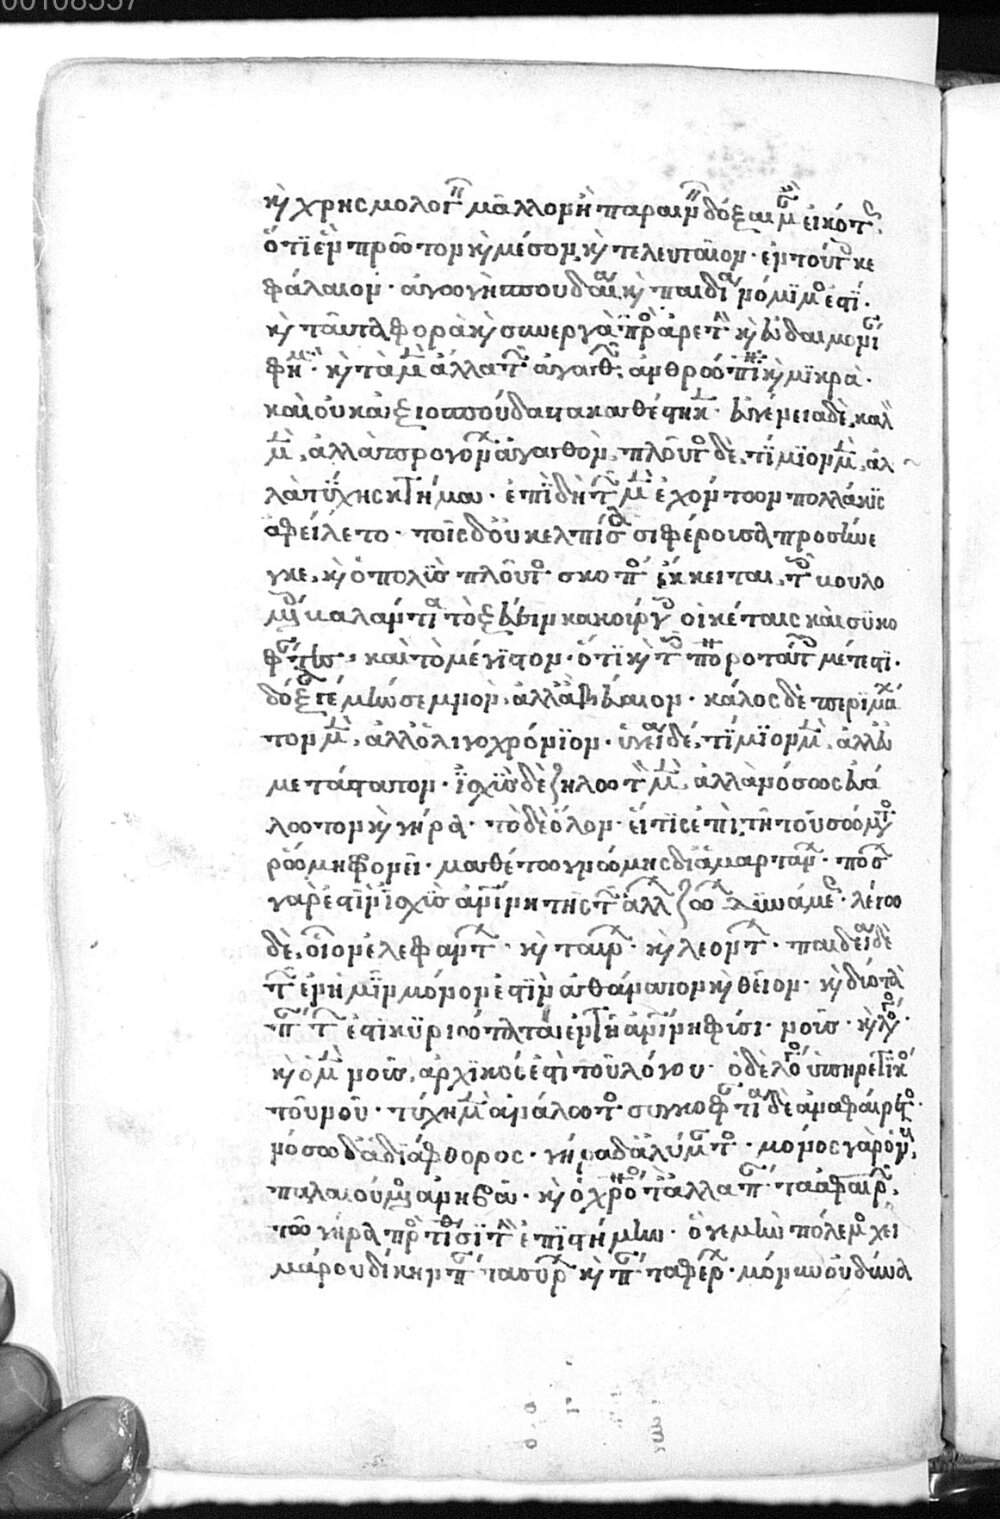 καὶ χρησμολογεῖν μᾶλλον ἢ παραινεῖν δόξαιμ' ἂν εἰκότως,
ὅτι ἓν πρῶτον καὶ μέσον, καὶ τελευταῖον· ἐν τούτοις κε
φάλαιον· ἀγωγὴ σπουδαία καὶ παιδεία νόμιμος ἐστί·
καὶ ταῦτα φορὰ καὶ συνεργὰ πρὸς ἀρετὴν καὶ εὐδαιμονί
φημί· καὶ τὰ μὲν ἄλλα τῶν ἀγαθῶν, ἀνθρώπινα καὶ μικρὰ·
καὶ οὐκ ἀξιοσπούδαστα καθέστηκεν· εὐγένεια δὲ, καλὸν
μὲν, ἀλλὰ προγόνων ἀγαθὸν, πλοῦτος δὲ, τίμιον μὲν, ἀλ
λὰ τύχης κτῆμα· ἐπειδὴ τῶν μὲν ἐχόντων πολλάκις
ἀφείλετο· τοῖς δ' οὐκ ἐλπίσασι φέρουσα προσήνε
γκε, καὶ ὁ πολὺς πλοῦτος σκοπὸς ἔκκειται, τοῖς βουλο
μένοις βαλάντια τοξεύειν κακούργοις οἰκέταις καὶ συκο
φάνταις, καὶ τὸ μέγιστον· ὅτι καὶ τοῖς πονηροτάτοις μέτεστι·
δόξα γε μὴν σεμνὸν, ἀλλ' ἀβέβαιον· κάλος δὲ περιμάχη
τον μὲν, ἀλλ' ὀλιγοχρόνιον· ὑγεία δὲ, τίμιον μὲν, ἀλλ' εὐ
μετάστατον· ἰσχὺς δὲ ζηλωτὸν μὲν, ἀλλὰ νόσῳ εὐά
λωτον καὶ γήρᾳ· τὸ δὲ ὅλον· εἴ τις ἐπὶ τῇ τοῦ σώματος
ῥώμῃ φρονεῖ· μαθέτω γνώμης διαμαρτάνων· πόστον
γὰρ ἐστὶν ἰσχὺς ἀνθρωπίνη τῆς τῶν ἄλλων ζώων δυνάμεως· λέγω
δὲ, οἷον ἐλεφάντων· καὶ ταύρων· καὶ λεόντων· παιδεία δὲ
τῶν ἐν ἡμῖν μόνον ἐστὶν ἀθάνατον καὶ θεῖον· καὶ δύο τὰ
πάντων ἐστὶ κυριώτατα ἐν τῇ ἀνθρωπίνη φύσι· νοῦς· καὶ λόγος·
καὶ ὁ μὲν νοῦς, ἀρχικός ἐστι τοῦ λόγου· ὁ δὲ λόγος ὑπηρετικὸς
τοῦ νοῦ· τύχῃ μὲν ἀνάλωτος· συκοφαντία δὲ ἀναφαίρετος·
νόσῳ δ' ἀδιάφθορος· γήρᾳ δ' ἀλύμαντος· μόνος γὰρ ὁ νοῦς,
παλαιούμενος ἀνηβᾷ· καὶ ὁ χρόνος τἄλλα πάντα ἀφαιρῶν,
τῷ γήρᾳ προστίθησι τὴν ἐπιστήμην· ὅ γε μὴν πόλεμος χει
μάρου δίκην πάντα σύρων καὶ πάντα φέρων· μόνην οὐ δύνα